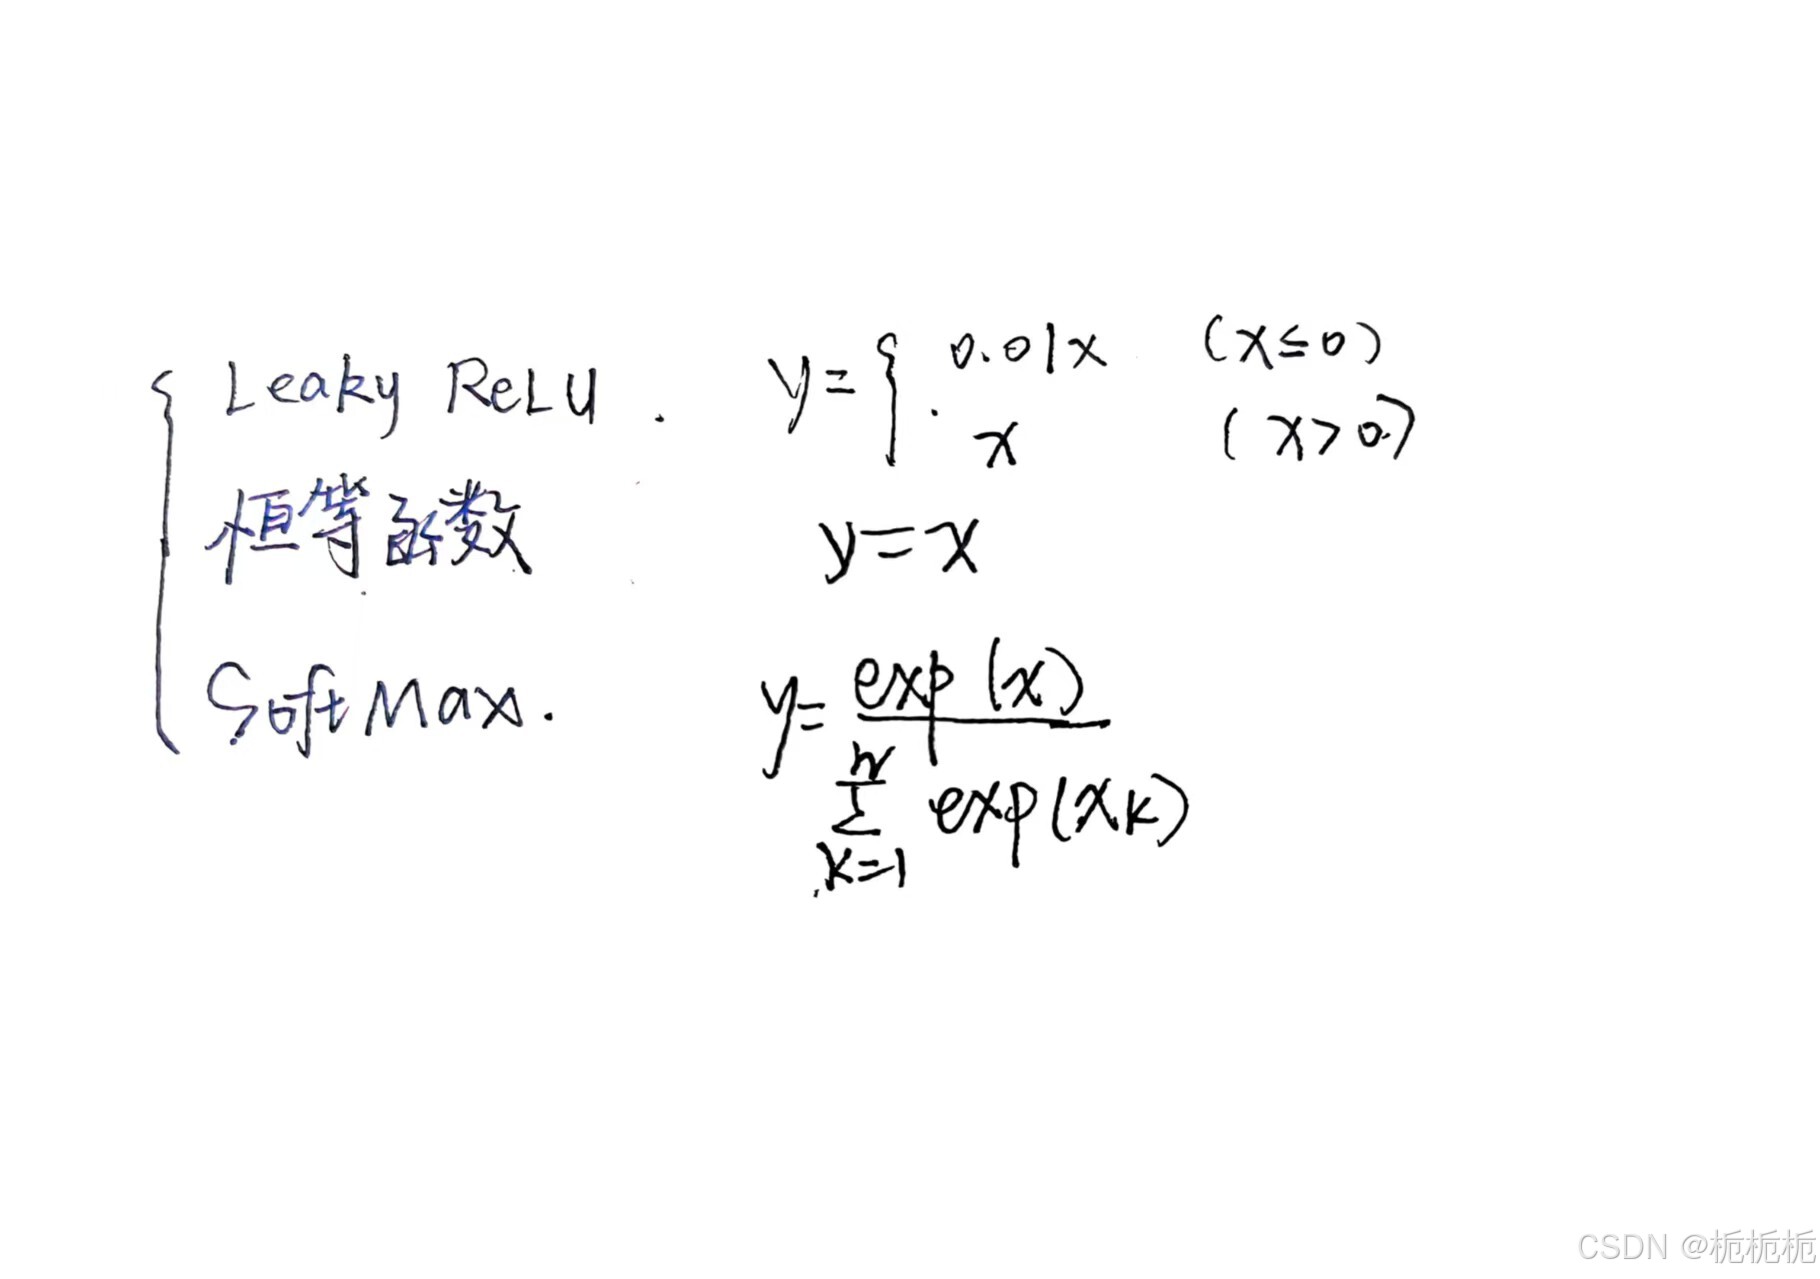 Leaky ReLU. y={ 0.01x (x≤0)
x (x>0)
恒等函数 y=x
SoftMax. y= exp(x)
n
Σ exp(xk)
k=1
CSDN @栀栀栀